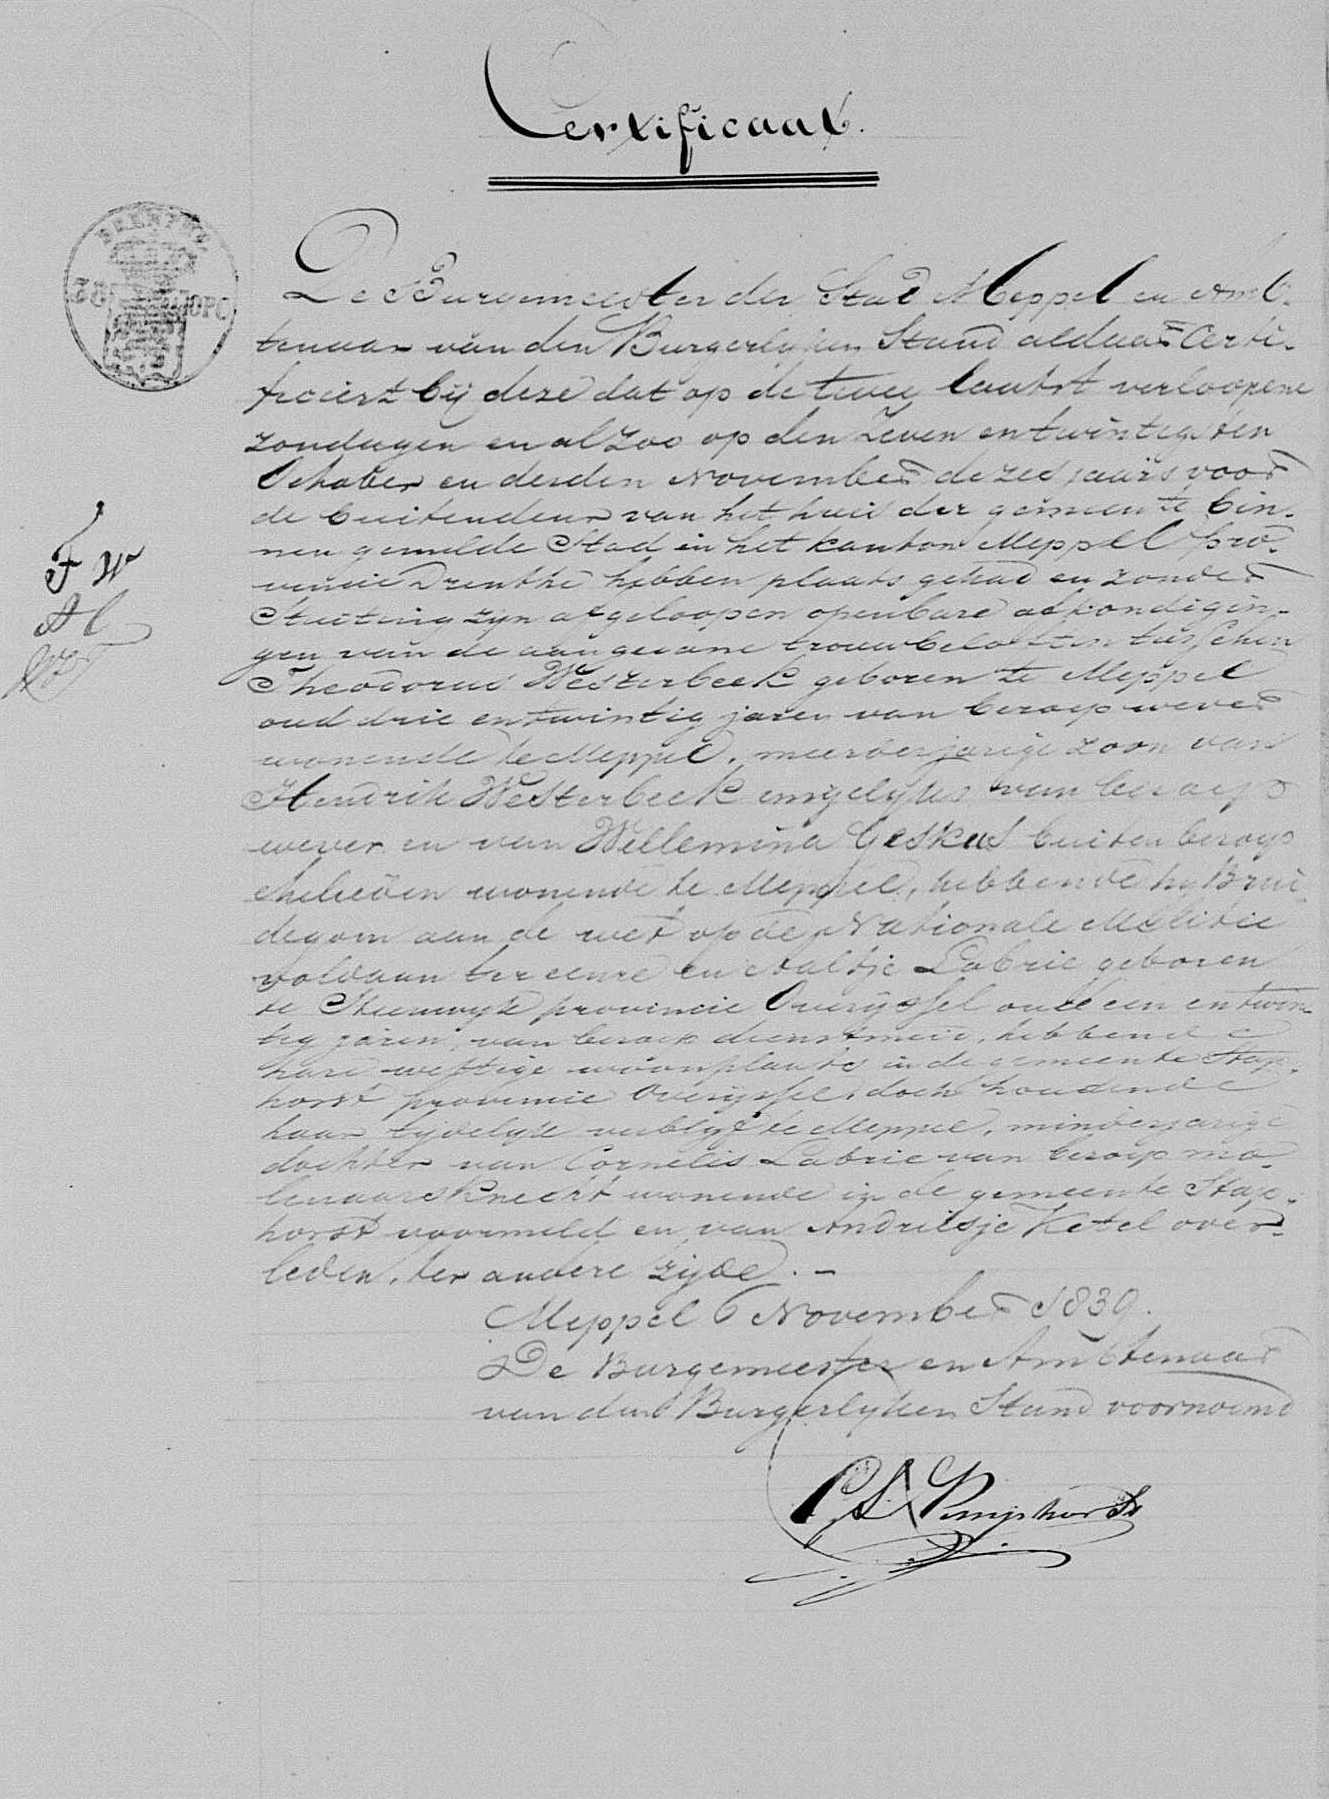 Certificaat.
De Burgemeester der Stad Meppel en Amb-
tenaar van den Burgerlyken Stand aldaar Certi-
ficeert bij deze dat op de twee laatst verloopene
zondagen en alzoo op den Zeven en twintigsten
October en derden November dezes jaars voor
de buitendeur van het huis der gemeente bin-
nen gemelde Stad in het kanton Meppel pro-
vincie Drenthe hebben plaats gehad en zonder
Stuiting zyn afgeloopen openbare afkondigin-
gen van de aangegane trouwbeloften tusschen
Theodorus Westerbeek geboren te Meppel
oud drie en twintig jaren van beroep wever
wonende te Meppel, meerderjarige zoon van
Hendrik Westerbeek insgelyks van beroep
wever en van Willemina Geskus buiten beroep
Ehelieden wonende te Meppel, hebbende hy Brui
degom aan de wet op de Nationale Militie
voldaan ter eenre en Aaltje Labrie geboren
te Steenwyk provincie Overijssel oud een en twin-
tig jaren, van beroep dienstmeid, hebbende
hare wettige woonplaats in de gemeente Stap-
horst provincie Overijssel, doch houdende
haar tydelyk verblyf te Meppel, minderjarige
dochter van Cornelis Labrie van beroep mo-
lenaarsknecht wonende in de gemeente Stap-
horst voormeld en van Andriesje Ketel over-
leden, ter andere zijde. -
Meppel 6 November 1839.
De Burgemeester en Ambtenaar
van den Burgerlyken Stand voornoemd
F W
A L